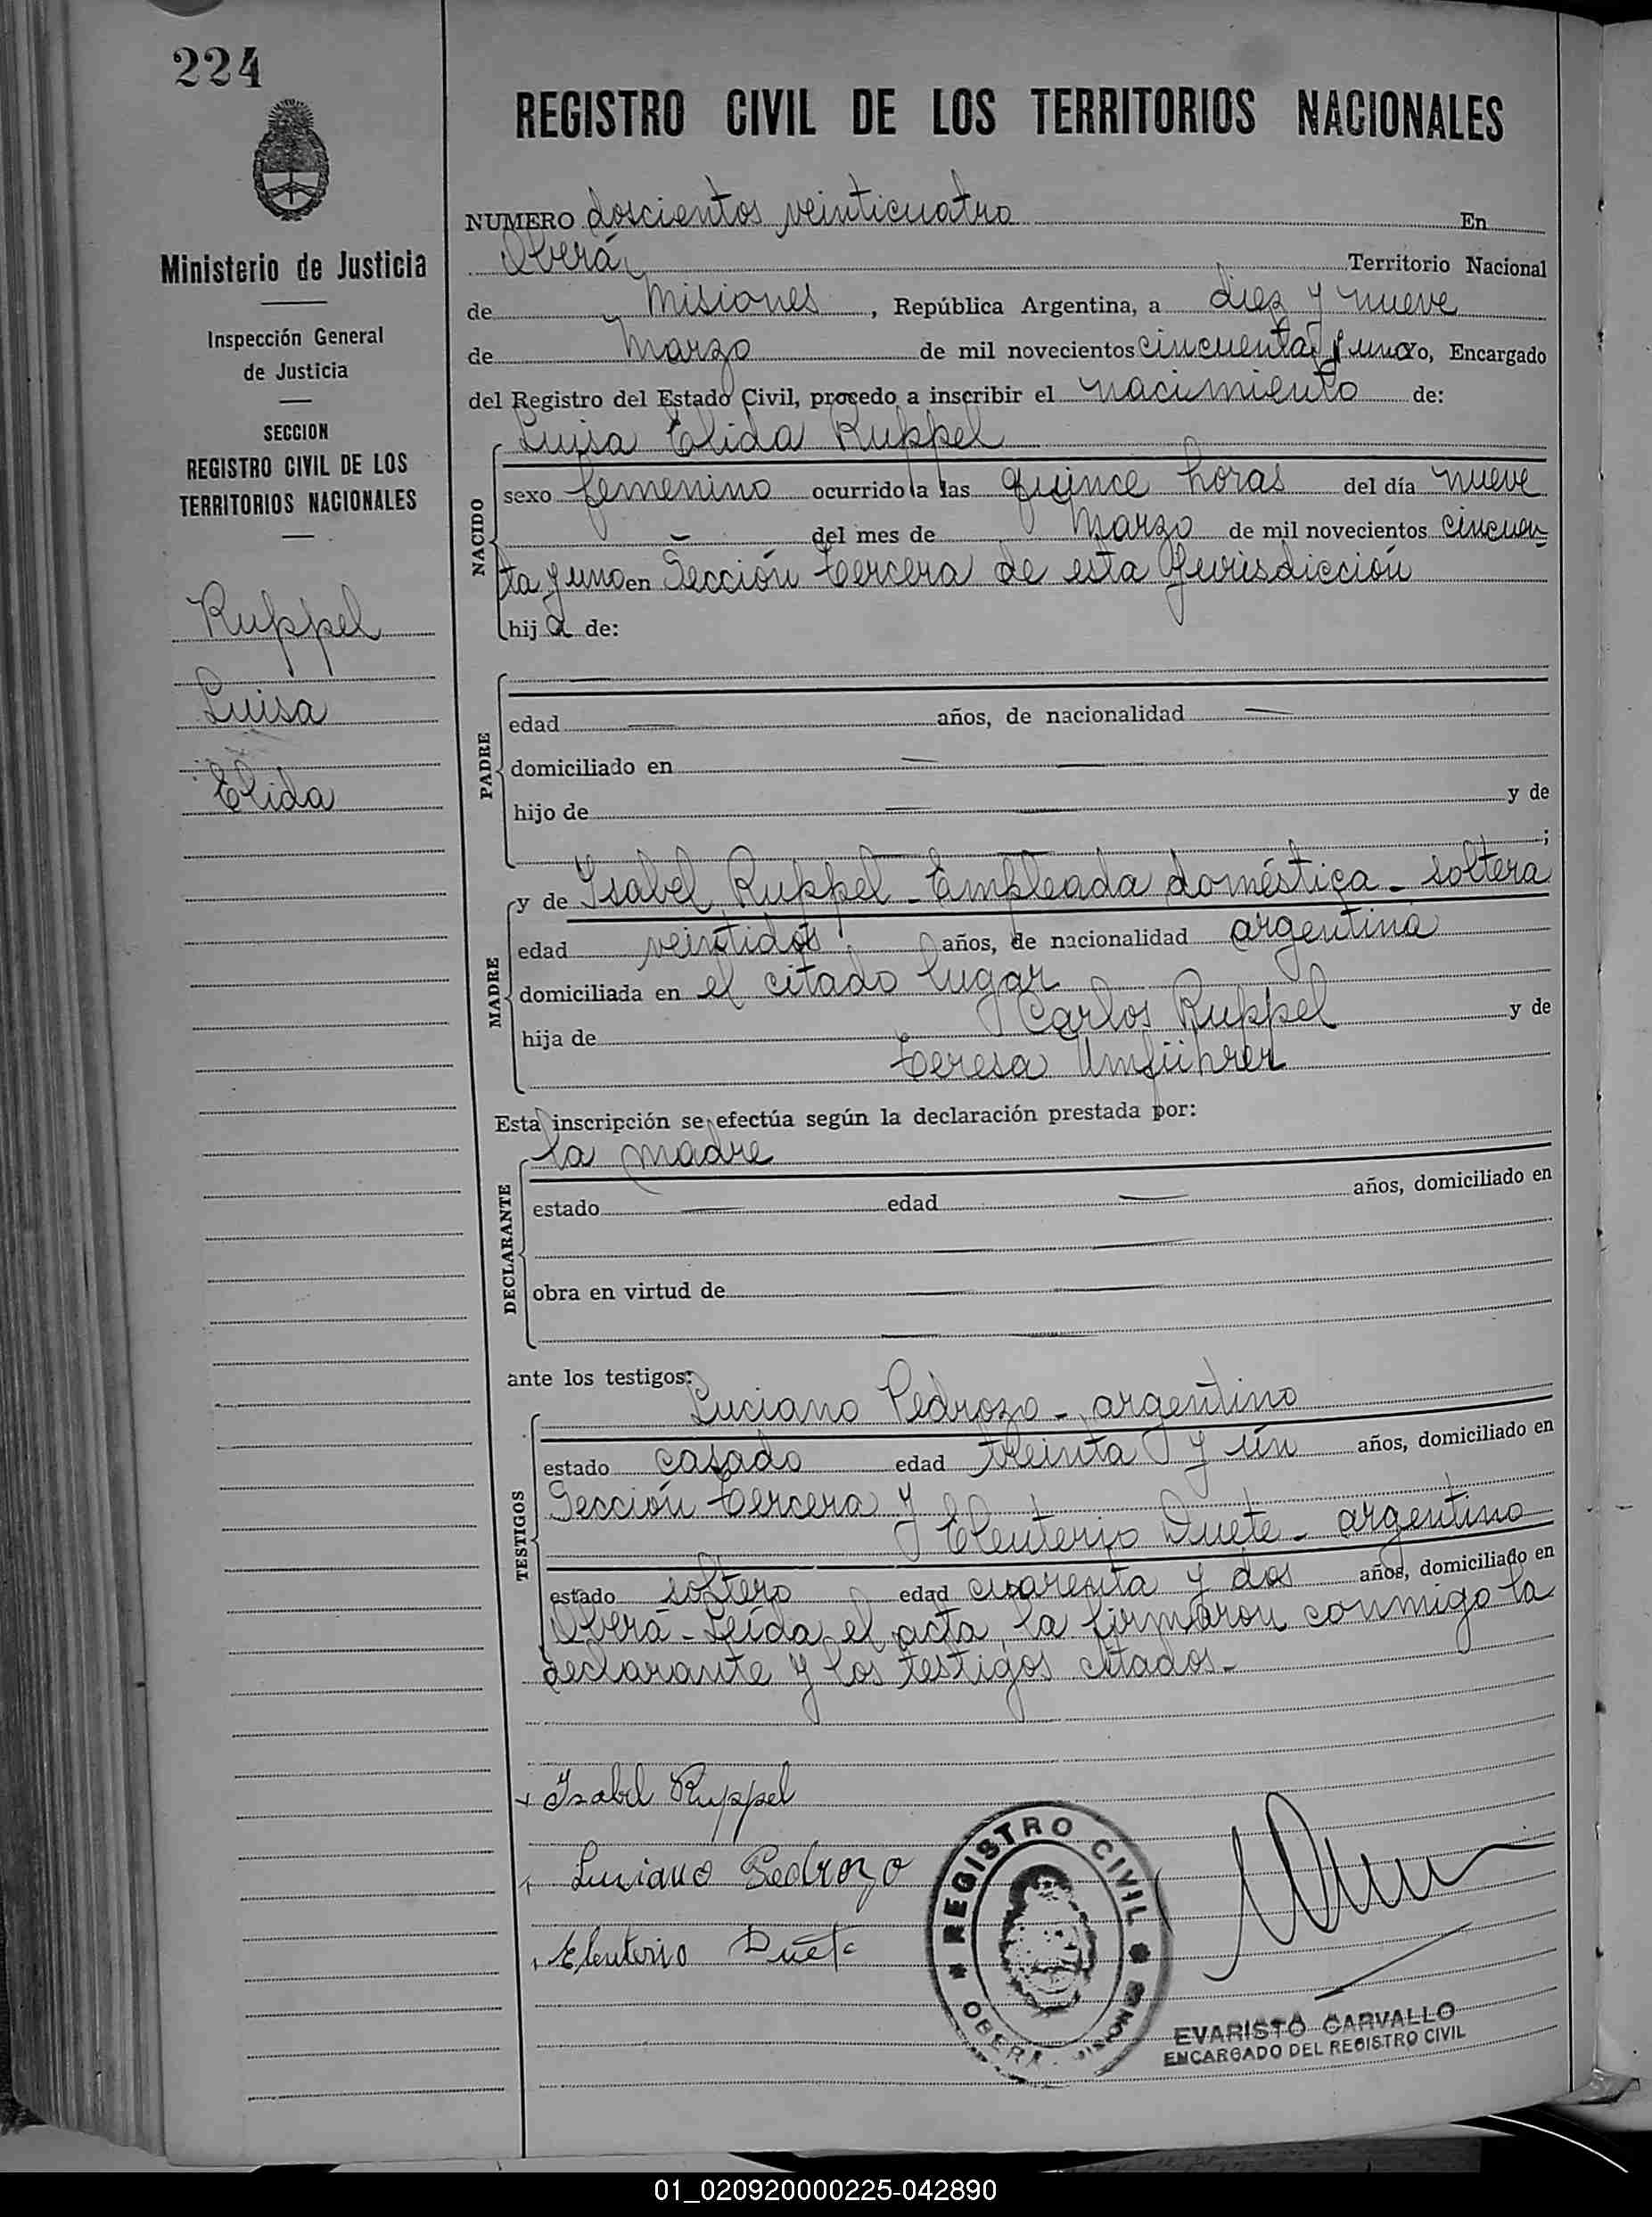 224
Ministerio de Justicia
Inspección General
de Justicia
SECCION
REGISTRO CIVIL DE LOS
TERRITORIOS NACIONALES
Ruppel
Luisa
Elida
REGISTRO CIVIL DE LOS TERRITORIOS NACIONALES
NUMERO doscientos veinticuatro En
Oberá, Territorio Nacional
de Misiones, República Argentina, a diez y nueve
de Marzo de mil novecientos cincuenta y uno yo, Encargado
del Registro del Estado Civil, procedo a inscribir el nacimiento de:
Luisa Elida Ruppel
NACIDO
sexo femenino ocurrido a las quince horas del día nueve
del mes de Marzo de mil novecientos cincuen-
ta y uno en Sección tercera de esta Jurisdicción
hija de:
PADRE
edad — años, de nacionalidad —
domiciliado en — —
hijo de — y de
;
MADRE
y de Isabel Ruppel - Empleada doméstica - soltera
edad veintidos años, de nacionalidad argentina
domiciliada en el citado lugar
hija de Carlos Ruppel y de
Teresa Umführer
Esta inscripción se efectúa según la declaración prestada por:
la madre
DECLARANTE
estado — edad — años, domiciliado en
obra en virtud de —
ante los testigos:
Luciano Pedrozo - argentino
TESTIGOS
estado casado edad treinta y ún años, domiciliado en
Sección tercera y
Eleuterio Duete - argentino
estado soltero edad cuarenta y dos años, domiciliado en
Oberá - Leída el acta, la firmaron conmigo la
declarante y los testigos citados.-
Isabel Ruppel
Luciano Pedrozo
Eleuterio Duete
REGISTRO CIVIL
OBERA - MISIONES
EVARISTO CARVALLO
ENCARGADO DEL REGISTRO CIVIL
01_020920000225-042890